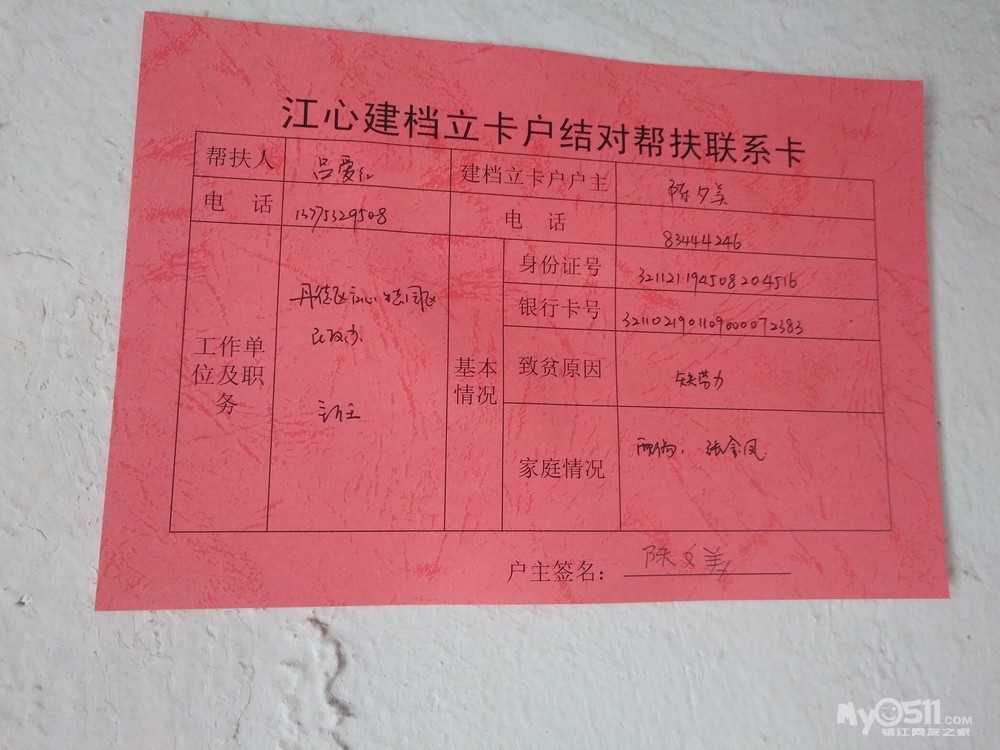 江心建档立卡户结对帮扶联系卡
帮扶人 吕爱红 建档立卡户户主 陈夕美
电 话 13775329508 电 话 83444246
工作单位及职务
丹徒区江心
民政办
主
基本情况
身份证号 321121194508204516
银行卡号 3211021901109000072383
致贫原因 缺劳力
家庭情况 张金凤
户主签名: 陈夕美
My0511.COM
镇江网友之家